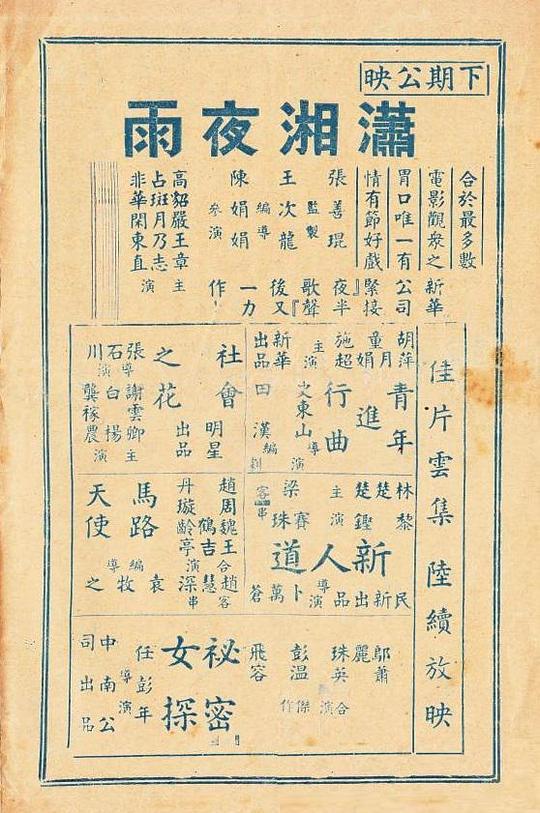 下期公映
瀟湘夜雨
合於最多數
電影觀衆之
胃口唯一有
情有節好戲
新華
公司
緊接
『夜半
歌聲』
後又
一力
作
張善琨
監製
王次龍
編導
陳娟娟
參演
高占非
貂斑華
嚴月閑
王乃東
章志直
主演
佳片雲集陸續放映
胡萍
童月娟
施超
主演
新華
出品
青年進行曲
史東山
導演
田漢
編劇
社會之花
明星
出品
張石川
導演
謝雲卿
白楊
龔稼農
主演
林楚楚
黎鏗
主演
梁賽珠
客串
新人道
民新出品
卜萬蒼
導演
趙丹
周璇
魏鶴齡
王吉亭
合演
趙慧深
客串
馬路天使
袁牧之
編導
鄔麗珠
蕭英
合演
彭飛
溫容
傑作
祕密女探
任彭年
導演
中南公司出品